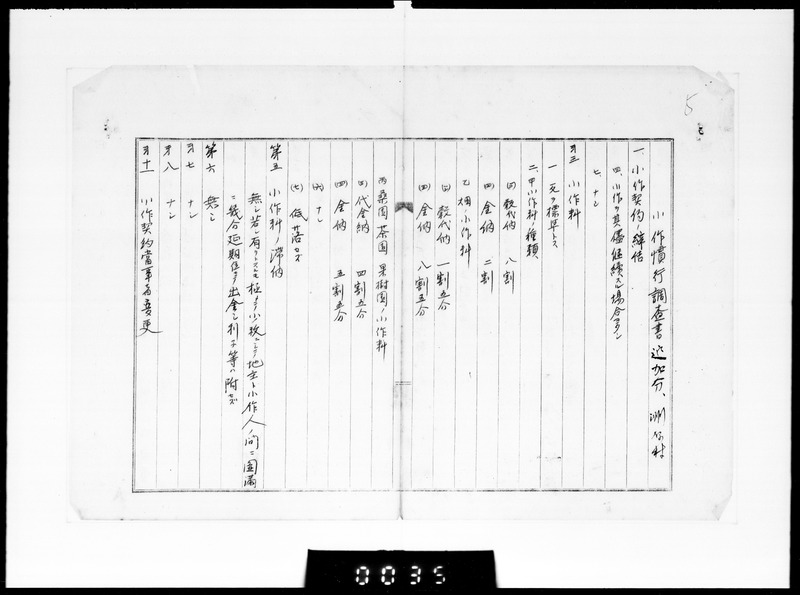 5
小作慣行調査書追加分、渕谷村
一、小作契約ノ締結
七、ナシ
四、小作ヲ其儘継続スル場合多シ
第三 小作料
一 元ヲ標準トス
二、甲小作料ノ種類
(二) 穀代納 八割
(四) 金納 二割
乙 畑小作料
(三) 穀代納 一割五分
(四) 金納 八割五分
丙 桑園 茶園 果樹園ノ小作料
(三) 代金納 四割五分
(四) 金納 五割五分
(六) ナシ
(七) 低落セズ
第五 小作料ノ滞納
無シ若シ有リトスルモ極メテ少数ニシテ地主ト小作人ノ間ニ圓満
ニ幾分延期後出金シ利子等ハ附セズ
第六 無シ
第七 ナシ
第八 ナシ
第十一 小作契約當事者変更
0035